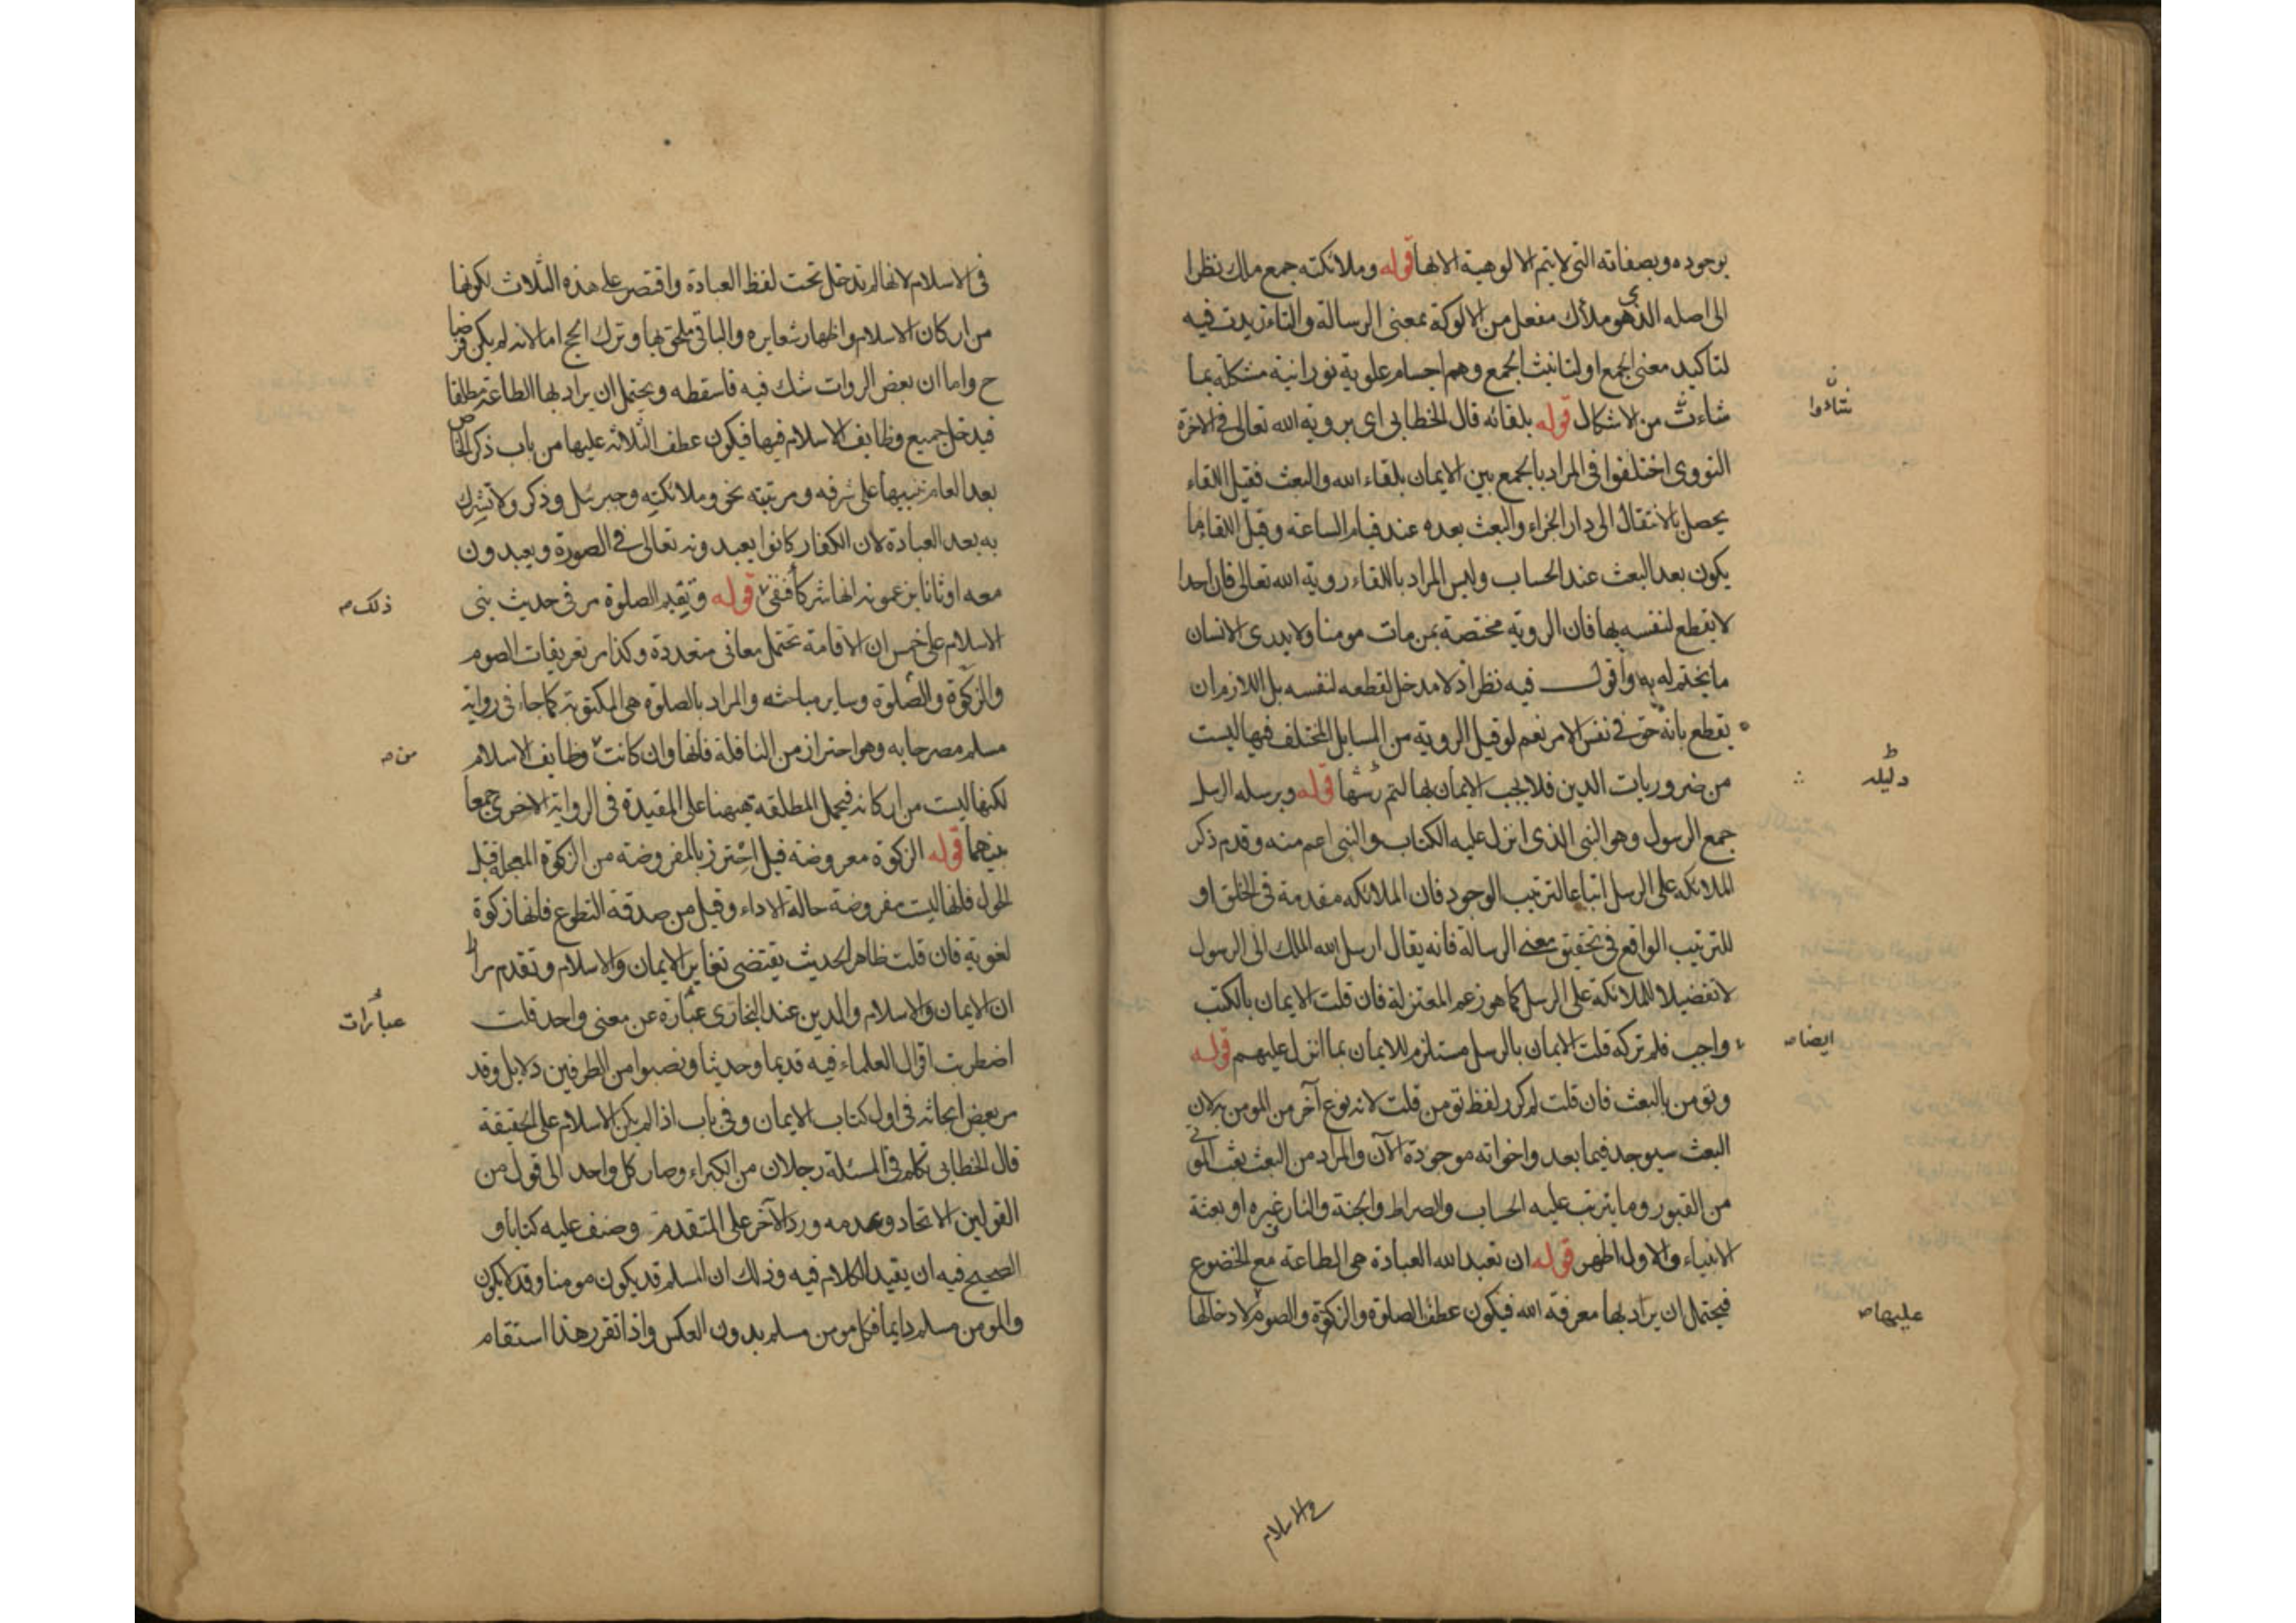 بوجوده وبصفاته التي لا يتم الالوهية الا بها قوله وملائكته جمع ملك نظرا
الى اصله الذي هو ملأك مفعل من الالوكة بمعنى الرسالة والتاء زيدت فيه
لتاكيد معنى الجمع او لتانيث الجمع وهم اجسام علوية نورانية مشكلة بما
شاءت من الاشكال قوله بلقائه قال الخطابي اي بروية الله تعالى في الاخرة
النووي اختلفوا في المراد بالجمع بين الايمان بلقاء الله والبعث فقيل اللقاء
يحصل بالانتقال الى دار الجزاء والبعث بعده عند قيام الساعة وقيل اللقاء ما
يكون بعد البعث عند الحساب وليس المراد باللقاء روية الله تعالى فان احدا
لا يقطع لنفسه بها فان الروية مختصة بمن مات مومنا ولا يدرى الانسان
ما يختم له به واقول فيه نظر اذ لا مدخل لقطعه لنفسه بل اللازم ان
يقطع بانه حق في نفس الامر نعم لو قيل الروية من المسايل المختلف فيها ليست
من ضروريات الدين فلا يجب الايمان بها لتم قوله وبرسله الرسل
جمع الرسول وهو النبي الذي انزل عليه الكتاب والنبي اعم منه وقدم ذكر
الملائكه على الرسل اتباعا لترتيب الوجود فان الملائكه مقدمة في الخلق او
للترتيب الواقع في تحقيق معنى الرسالة فانه يقال ارسل الله الملك الى الرسول
لا تفضيلا للملائكة على الرسل كما هو زعم المعتزلة فان قلت الايمان بالكتب
واجب فلم تركه قلت الايمان بالرسل مستلزم للايمان بما انزل عليهم قوله
وتومن بالبعث فان قلت لم كرر لفظ تومن قلت لانه نوع آخر من المومن به لان
البعث سيوجد فيما بعد واخواته موجودة الآن والمراد من البعث بعث الموتى
من القبور وما يترتب عليه الحساب والصراط والجنة والنار غيره او بعثة
الانبياء والاول اظهر قوله ان تعبد الله العبادة هي الطاعة مع الخضوع
فيحتمل ان يراد بها معرفة الله فيكون عطف الصلوة والزكوة والصوم لادخالها
دليله
ايضا صـ
عليها صـ
في الاسلام
في الاسلام لانها لم تدخل تحت لفظ العبادة واقتصر على هذه الثلاث لكونها
من اركان الاسلام واظهار شعايره والباقي ملحق بها وترك الحج اما لانه لم يكن فرضا
ح واما ان بعض الروات شك فيه فاسقطه ويحتمل ان يراد بها الطاعة مطلقا
فيدخل جميع وظايف الاسلام فيها فيكون عطف الثلاثه عليها من باب ذكر الخاص
بعد العام تنبيها على شرفه ومرتبته نحو وملائكته وجبرئل وذكر ولا تشرك
به بعد العبادة لان الكفار كانوا يعبدونه تعالى في الصورة ويعبدون
معه اوثانا يزعمونه انها شركا فنفى قوله وتقيم الصلوة مر في حديث بني
الاسلام على خمس ان الاقامة تحتمل معاني متعددة وكذا مر تعريفات الصوم
والزكوة والصلوة وساير مباحثه والمراد بالصلوة هي المكتوبة كما جاء في رواية
مسلم مصرحا به وهو احتراز من النافلة فانها وان كانت وظايف الاسلام
لكنها ليست من اركانه فيحمل المطلقه ههنا على المقيدة في الرواية الاخرى جمعا
بينهما قوله الزكوة مفروضة قيل احترز بالمفروضة من الزكوة المعجلة قبل
الحول فانها ليست مفروضة حالة الاداء وقيل من صدقة التطوع فانها زكوة
لغوية فان قلت ظاهر الحديث يقتضي تغاير الايمان والاسلام وتقدم مرارا
ان الايمان والاسلام والدين عند البخاري عبارة عن معنى واحد قلت
اضطربت اقوال العلماء فيه قديما وحديثا ونصبوا من الطرفين دلايل وقد
مر بعض ابحاثه في اول كتاب الايمان وفي باب اذا لم يكن الاسلام على الحقيقة
قال الخطابي تكلم في المسئلة رجلان من الكبراء وصار كل واحد الى قول من
القولين الاتحاد وعدمه ورد الآخر على المتقدم وصنف عليه كتابا و
الصحيح فيه ان يقيد الكلام فيه وذلك ان المسلم قد يكون مومنا وقد لا يكون
والمومن مسلم دايما فكل مومن مسلم بدون العكس واذا تقرر هذا استقام
ذلك صـ
من صـ
عبارات